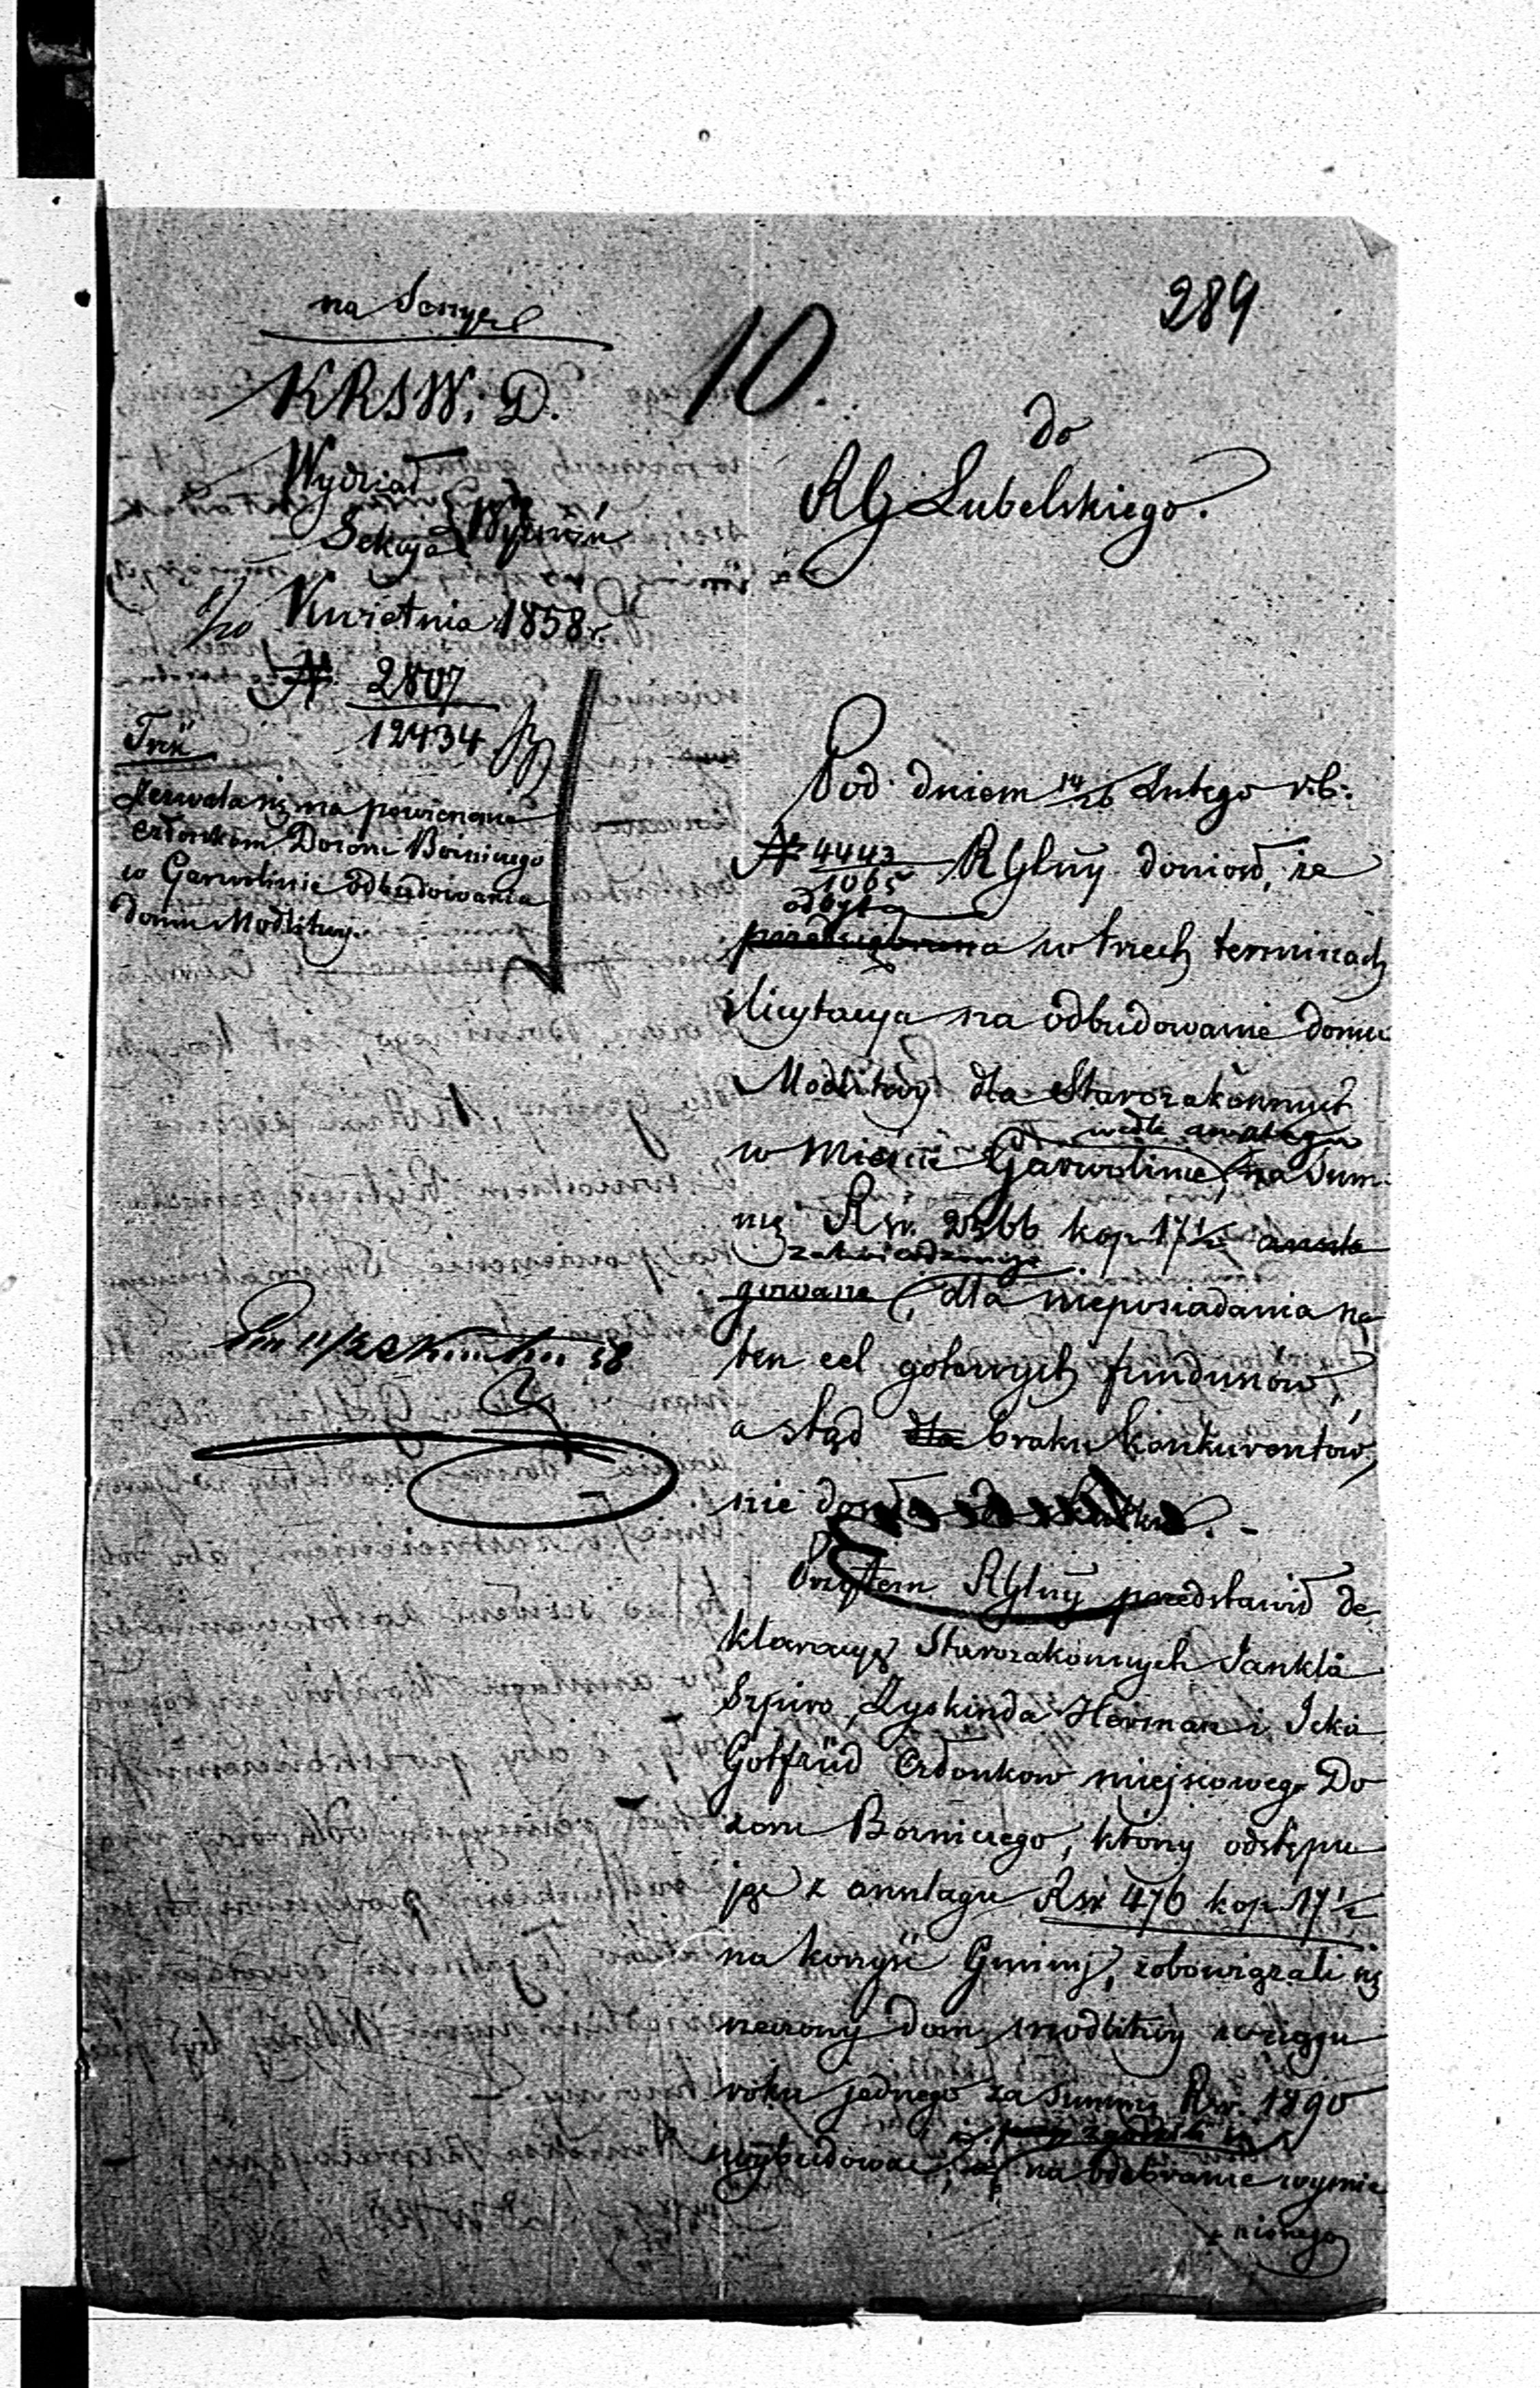 289
10.
KRSW. D.
Wydział
Sekcya Wyznań
Kwietnia 1858 r.
N 2807
12434
Treść
Zezwala się na powierzenie
członkom Dozoru Bóżniczego
w Garwolinie odbudowania
domu Modlitwy.
do
RG Lubelskiego.
Pod dniem 14/26 Lutego r.b.
N 4443
1065 RGlny doniosł, że
odbyta
w trzech terminach
licytacya na odbudowanie domu
Modlitwy dla Starozakonnych
wedle anszlagu
w Mieście Garwolinie, na Sum-
mę Rsr. 2366 kop 17½ anszla
gowane, dla nieposiadania na
ten cel gotowych funduszów,
a stąd dla braku konkurentów,
nie doszła do skutku. -
Przytem RGlny przedstawił de
klaracyę Starozakonnych Jankla
Szpiro, Zyskinda Herman i Icka
Gotfrüd Członkow miejscowego Do
zoru Bózniczego, ktorzy odstępu
jąc z anszlagu Rsr 476 kop 17½
na korzyść Gminy, zobowiązali się
rzeczony dom modlitwy w ciągu
roku jednego za summę Rsr. 1890
wybudować, na odebranie wymie
nionego